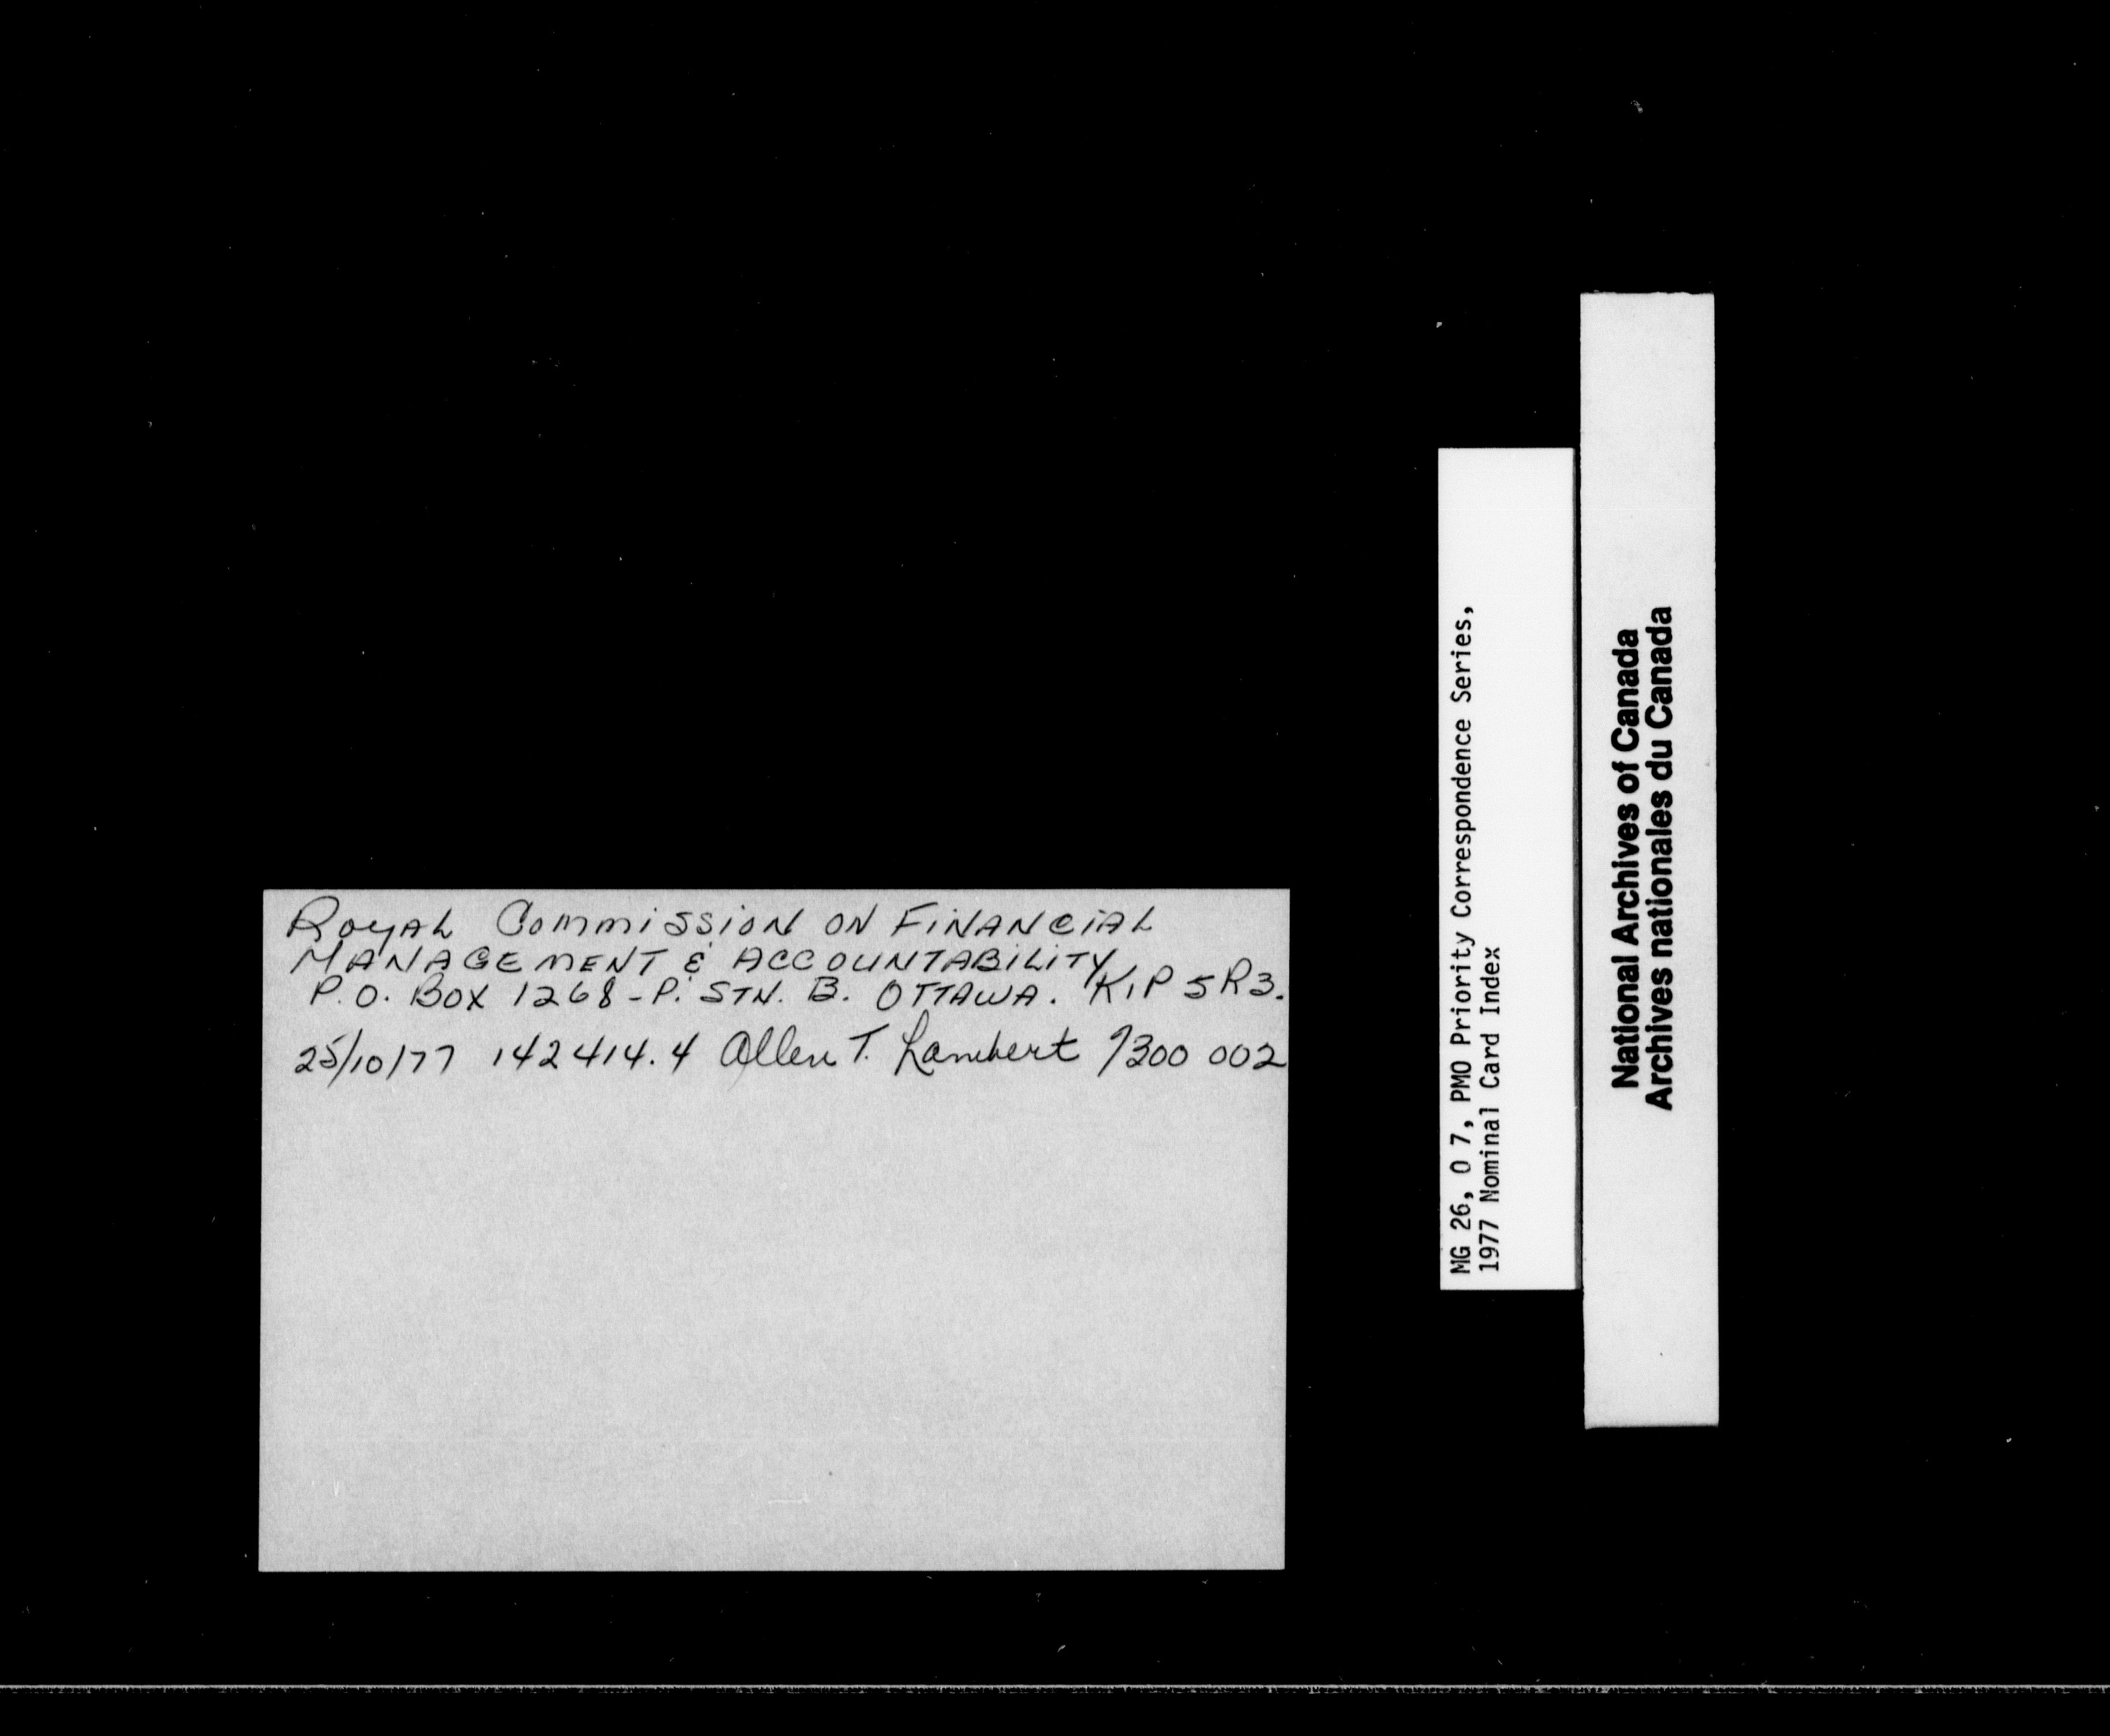 Royal Commission on Financial
Management & Accountability
P.O. Box 1268 - P. Stn. B. Ottawa. K1P 5R3.
25/10/77 142414.4 Allen T. Lambert /300 002
MG 26, O 7, PMO Priority Correspondence Series,
1977 Nominal Card Index
National Archives of Canada
Archives nationales du Canada